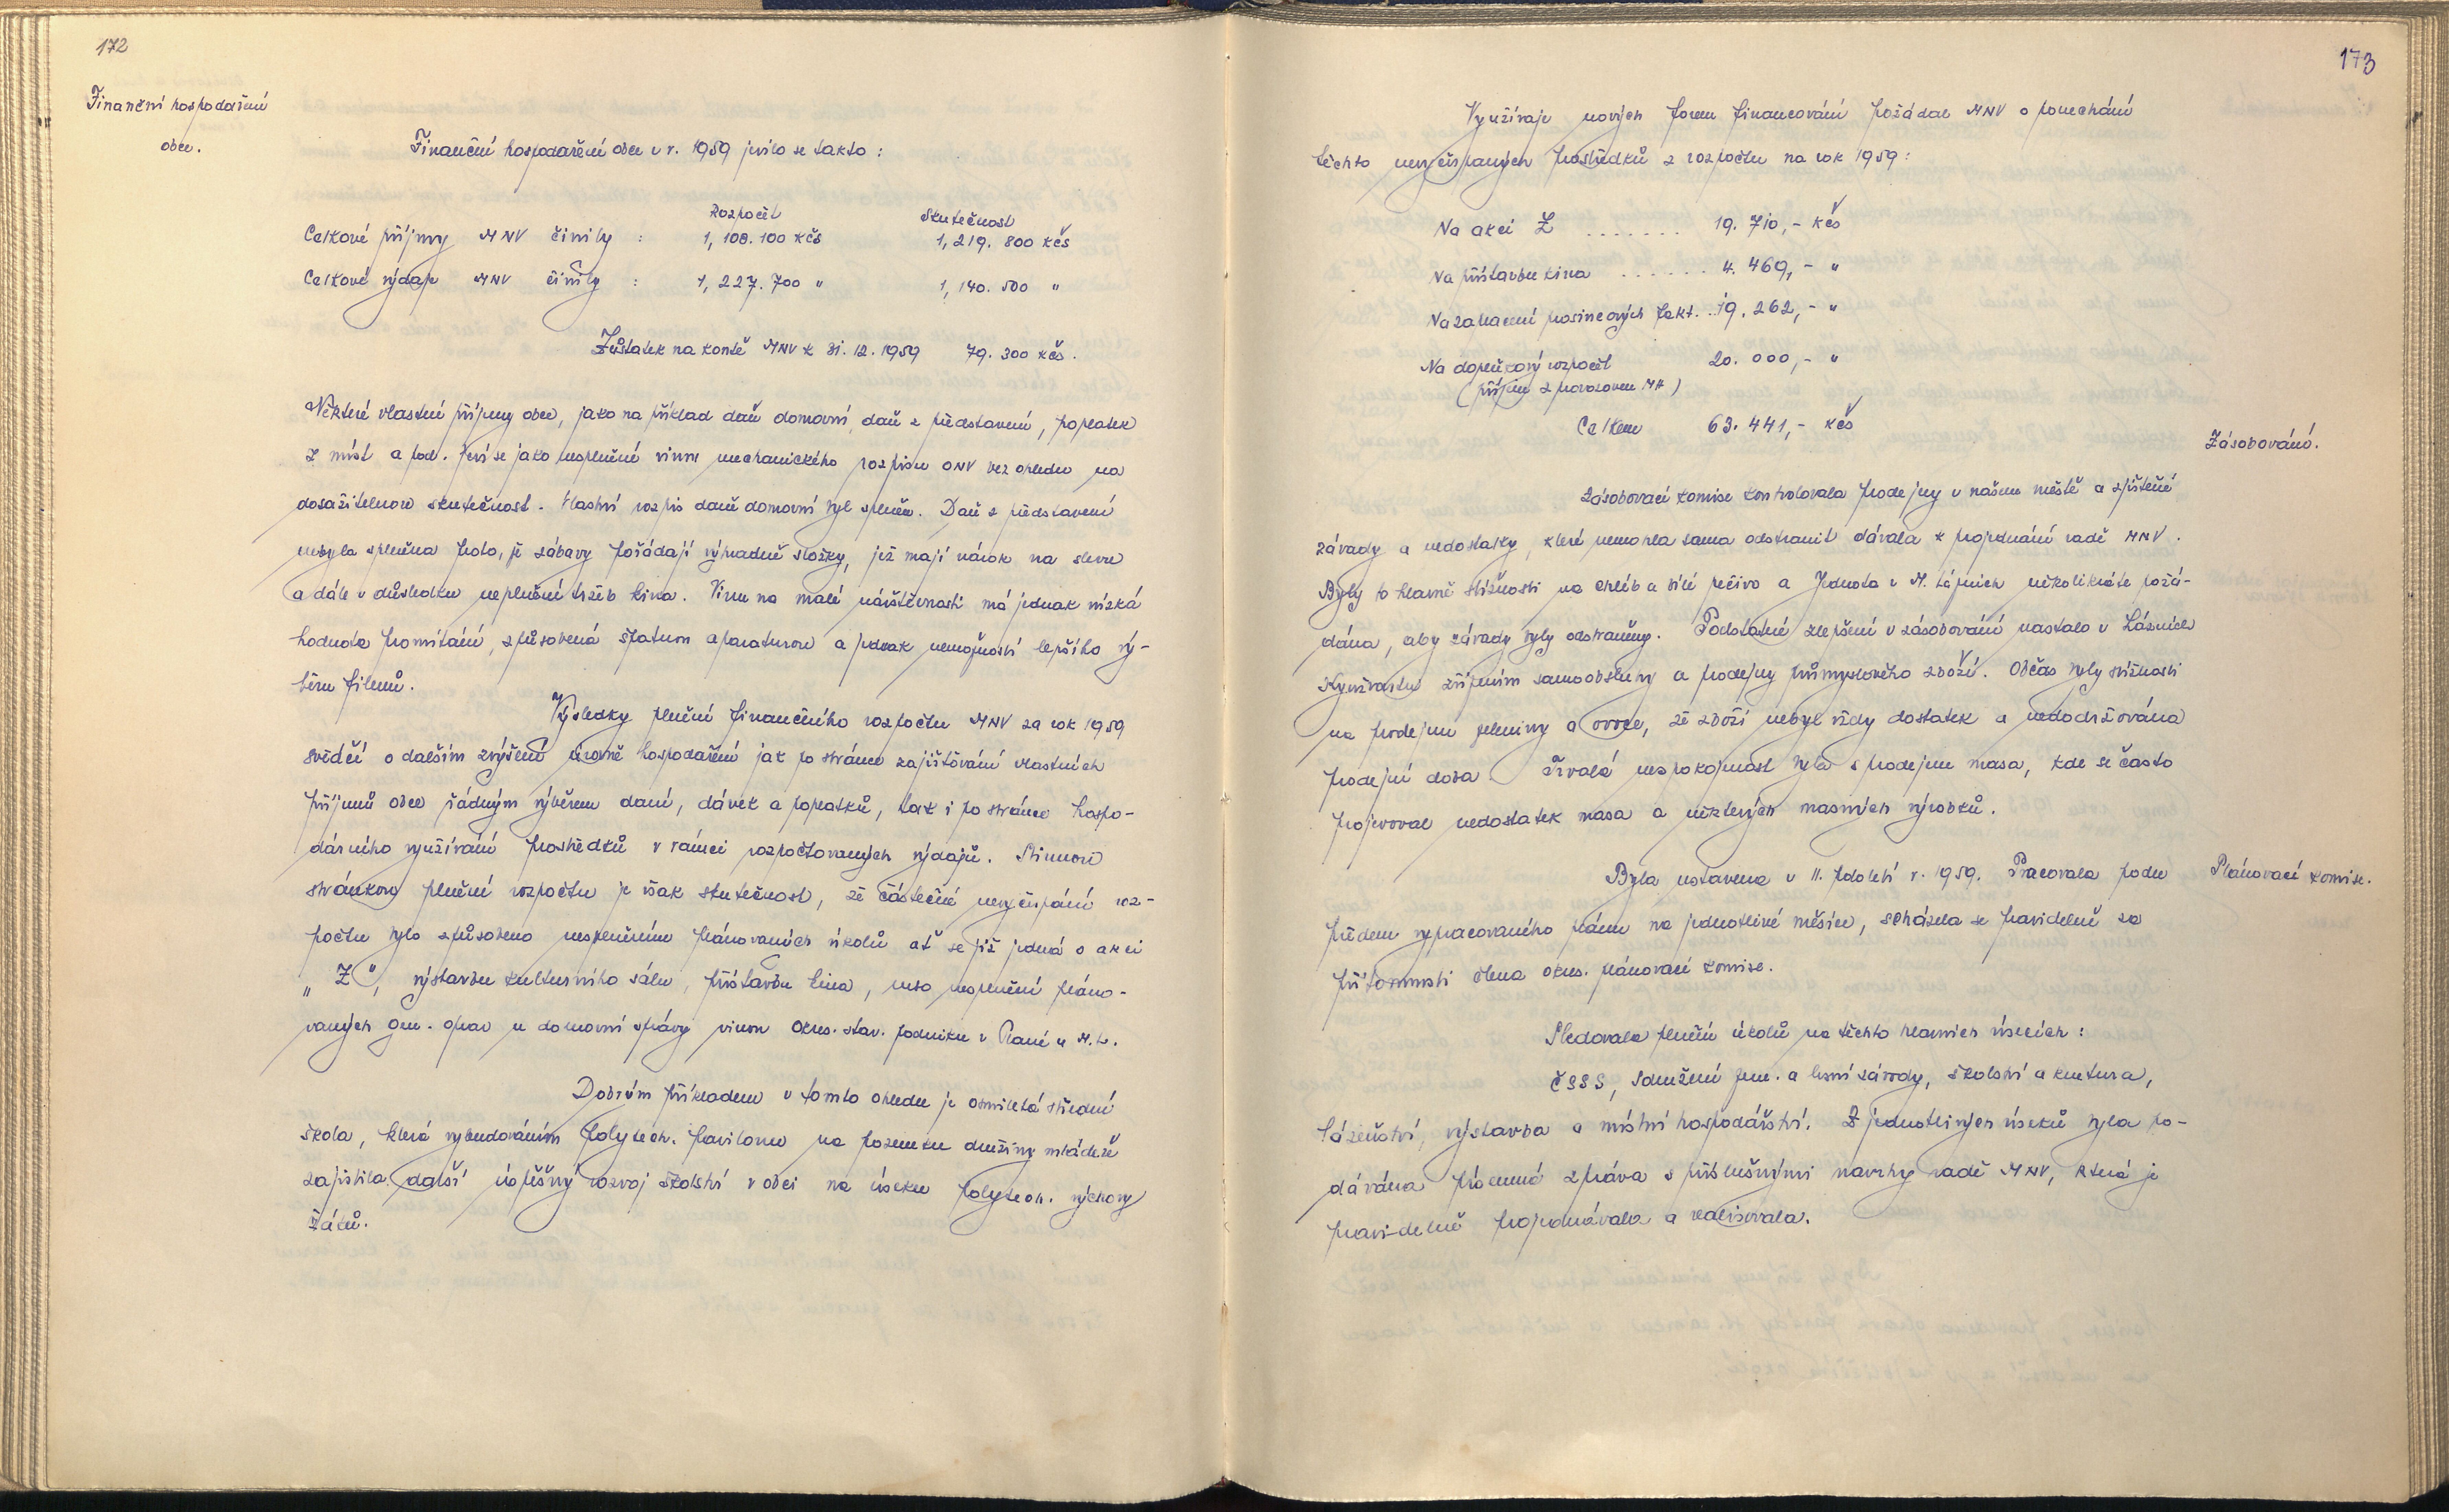 172
Finanční hospodaření
obce.
Finanční hospodaření obce v r. 1959 jevilo se takto :
Rozpočet Skutečnost
Celkové příjmy MNV činily : 1,108.100 Kčs 1,219.800 Kčs
Celkové výdaje MNV činily : 1,227.700 " 1,140.500 "
Zůstatek na kontě MNV k 31.12.1959 79.300 Kčs.
Některé vlastní příjmy obce, jako na příklad daň domovní, daň z představení, poplatek
z míst a pod. jeví se jako nesplněné vinou mechanického rozpisu ONV bez ohledu na
dosažitelnou skutečnost. Vlastní rozpis daně domovní byl splněn. Daň z představení
nebyla splněna proto, že zábavy pořádají výhradně složky, jež mají nárok na slevu
a dále v důsledku neplnění tržeb kina. Vinu na malé návštěvnosti má jednak nízká
hodnota promítání, způsobená špatnou aparaturou a jednak nemožností lepšího vý-
běru filmů.
Výsledky plnění finančního rozpočtu MNV za rok 1959
svědčí o dalším zvýšení úrovně hospodaření jak po stránce zajišťování vlastních
příjmů obce řádným výběrem daní, dávek a poplatků, tak i po stránce hospo-
dárního využívání prostředků v rámci rozpočtovaných výdajů. Stinnou
stránkou plnění rozpočtu je však skutečnost, že částečné nevyčerpání roz-
počtu bylo způsobeno nesplněním plánovaných úkolů ať se již jedná o akci
„Z", výstavbu kulturního sálu, přístavbu kina, nebo nesplnění pláno-
vaných gen. oprav u domovní správy vinou Okres. stav. podniku v Plané u M.L.
Dobrým příkladem v tomto ohledu je osmiletá střední
škola, která vybudováním polytech. pavilonu na pozemku družiny mládeže
zajistila další úspěšný rozvoj školství v obci na úseku polytech. výchovy
žáků.
173
Využívaje nových forem financování požádal MNV o ponechání
těchto nevyčerpaných prostředků z rozpočtu na rok 1959:
Na akci Z ....... 19.710,- Kčs
Na přístavbu kina ...... 4.469,- "
Na zaplacení prosincových fakt. .. 19.262,- "
Na doplňkový rozpočet 20.000,- "
(příjem z provozoven MH)
Celkem 63.441,- Kčs
Zásobování.
Zásobovací komise kontrolovala prodejny v našem městě a zjištěné
závady a nedostatky, které nemohla sama odstranit dávala k projednání radě MNV.
Byly to hlavně stížnosti na chléb a bílé pečivo a Jednota v M. Lázních několikráte požá-
dána, aby závady byly odstraněny. Podstatné zlepšení v zásobování nastalo v Lázních
Kynžvartu zřízením samoobsluhy a prodejny průmyslového zboží. Občas byly stížnosti
na prodejnu zeleniny a ovoce, že zboží nebyl vždy dostatek a nedodržována
prodejní doba. Trvalá nespokojnost byla s prodejnou masa, kde se často
projevoval nedostatek masa a některých masných výrobků.
Plánovací komise.
Byla ustavena v II. pololetí r. 1959. Pracovala podle
předem vypracovaného plánu na jednotlivé měsíce, scházela se pravidelně za
přítomnosti člena okres. plánovací komise.
Sledovala plnění úkolů na těchto hlavních úsecích :
ČSSS, Sdružení jem. a lesní závody, školství a kultura,
lázeňství, výstavba a místní hospodářství. Z jednotlivých úseků byla po-
dávána písemná zpráva s příslušnými návrhy radě MNV, která je
pravidelně projednávala a realisovala.